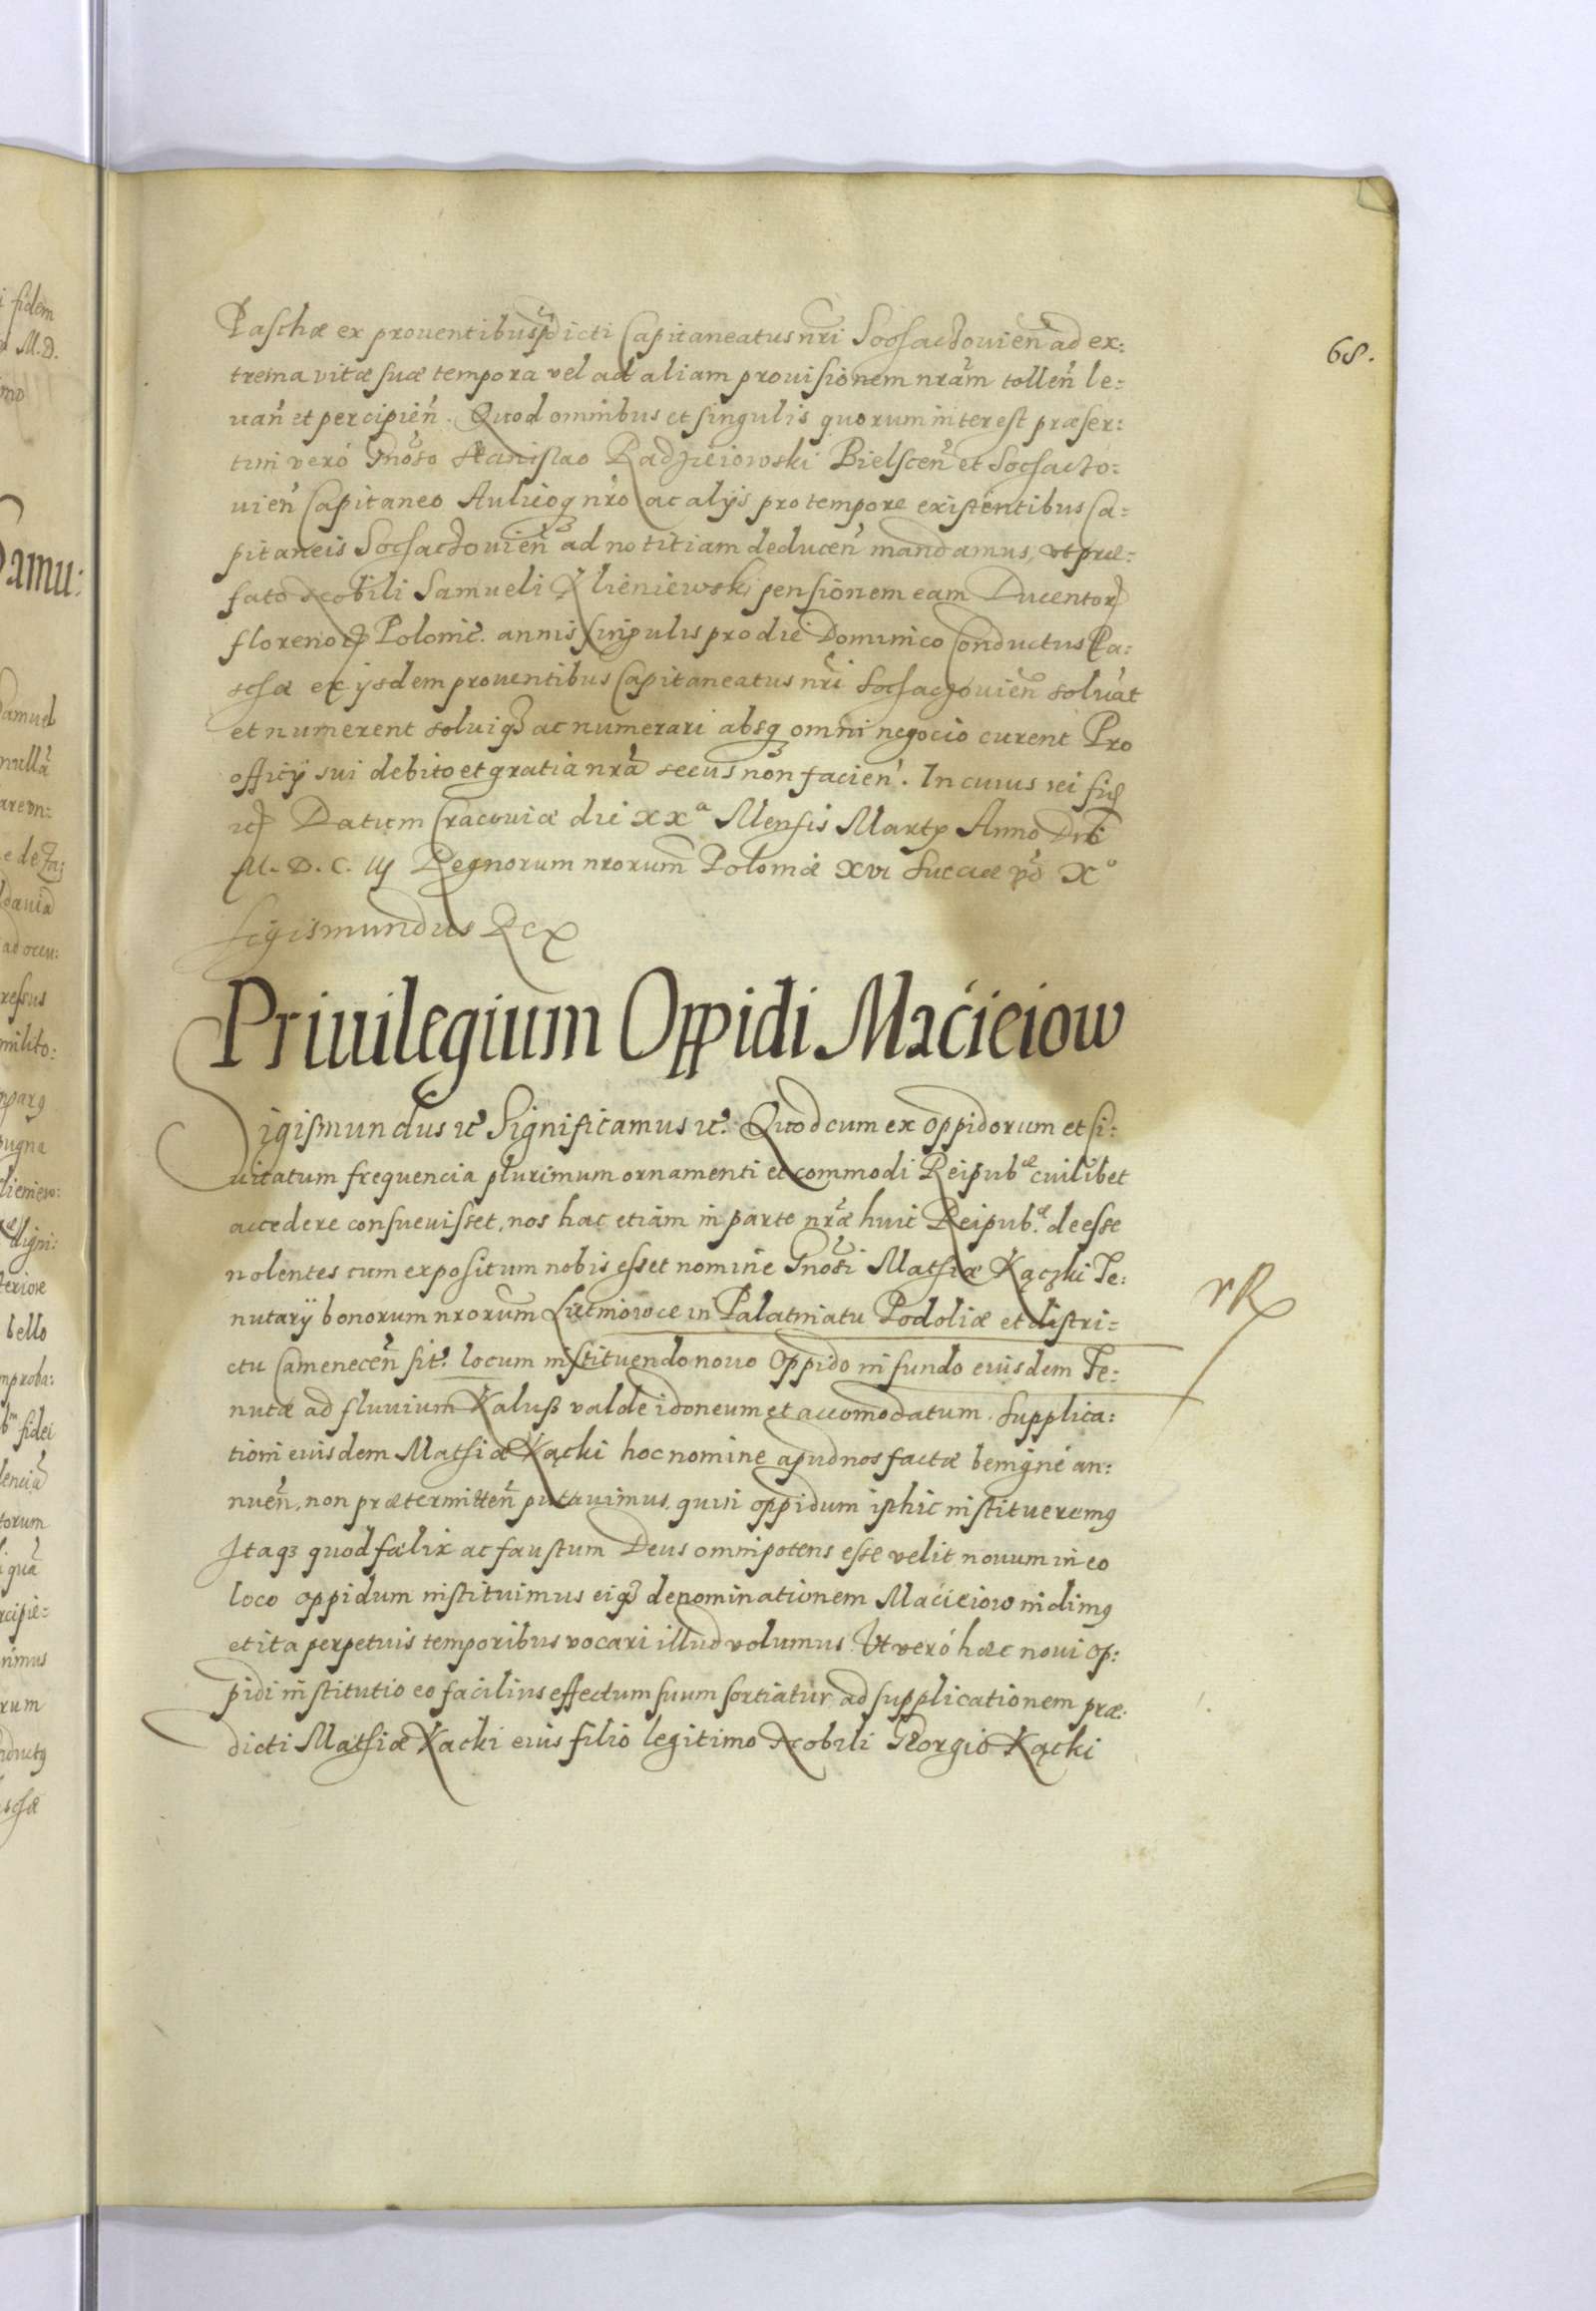 68.
Paschæ ex prouentibus p̃dicti Capitaneatus nr̃i Socħaczouien̄ ad ex:
trema vitæ suæ tempora vel ad aliam prouisionem nrãm tollen̄ le:
uan̄ et percipien̄. Quod omnibus et singulis quorum interest præser:
tim verò Gnõso Stanislao Radzieiowski Bielscen̄ et Socħaczo:
uien̄ Capitaneo Aulicoq; nrõ ac alÿs pro tempore existentibus Ca:
pitaneis Socħaczouien̄ ad notitiam deducen̄ mandamus, vt præ:
fato Nobili Samueli Klieniewski pensionem eam Ducentorꝝ
florenorꝝ Polonic̃. annis singulis pro die Dominico Conductus Pa:
scħæ ex ÿsdem prouentibus Capitaneatus nr̃i Socħaczouien̄ soluãt
et numerent soluiq; ac numerari absq; omni negocio curent Pro
officÿ sui debito et gratia nrã secus non facien̄. In cuius rei fidẽ
etc Datum Cracouiæ die XXª Mensis Martÿ Anno Dñi
M. D. C. IIJ Regnorum nrorum̃ Poloniæ XVI Sueciæ vȩ̃ò Xº
Sigismundus Rex
Priuilegium Oppidi Macieiow
Sigismundus etc Significamus etc. Quod cum ex oppidorum et Ci:
uitatum frequencia plurimum ornamenti et commodi Reipub.æ cuilibet
accedere consueuisset, nos hac etiam in parte nr̃æ huic Reipub.æ deesse
nolentes cum expositum nobis esset nomine Gnõsi Matħiæ Kączki Te:
nutarÿ bonorum nrorum̃ in Palatinatu Podoliæ et distri:
ctu Camenecen̄ sit̃. locum instituendo nouo Oppido in fundo eiusdem Te:
nutæ ad fluuium Kaluß valde idoneum et accomodatum. Supplica:
tioni eiusdem Matħiæ Kącki hoc nomine apud nos factæ benignè an:
nuen̄, non prætermitten̄ putauimus, quin oppidum isthic institueremꝯ
Itaq; quod fælix ac faustum Deus omnipotens esse velit, nouum in eo
loco oppidum instituimus eiq; denominationem Macieiow indimꝯ
et ita perpetuis temporibus vocari illud volumus. Vt verò hæc noui op:
pidi institutio eo facilius effectum suum sortiatur ad supplicationem præ:
dicti Matħiæ Kacki eius filio legitimo Nobili Georgio Kącki